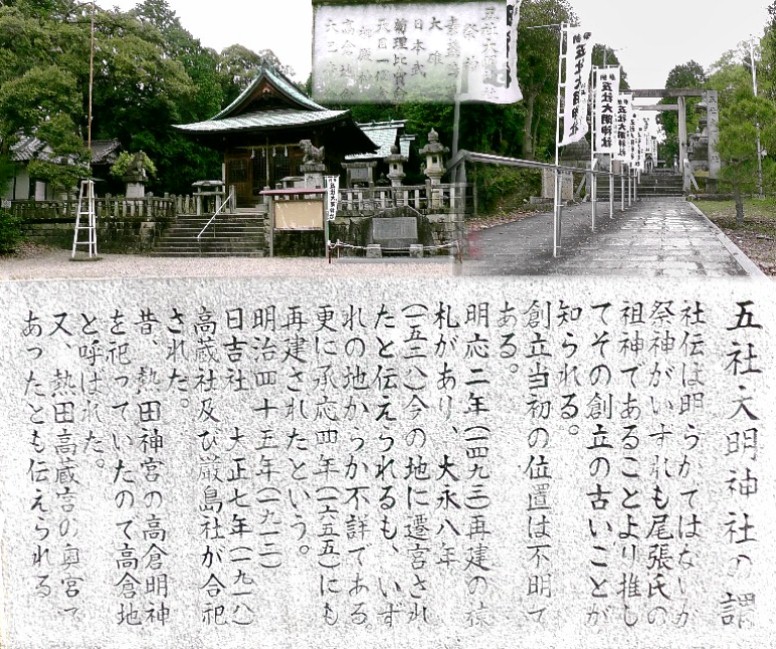 五社大明神社
祭神
大雄
日本武
菊理比賣命
天目一箇命
高倉
五社大明神社
五社大明神社
五社大明神社の謂
社伝は明らかではないが
祭神がいずれも尾張氏の
祖神であることより推し
てその創立の古いことが
知られる。
創立当初の位置は不明で
ある。
明応二年(一四九三)再建の棟
札があり、大永八年
(一五二八)今の地に遷宮され
たと伝えられるも、いず
れの地からか不詳である。
更に承応四年(一六五五)にも
再建されたという。
明治四十五年(一九一二)
日吉社 大正七年(一九一八)
高蔵社及び厳島社が合祀
された。
昔、熱田神宮の高倉明神
を祀っていたので高倉地
と呼ばれた。
又、熱田高蔵宮の奥宮で
あったとも伝えられる